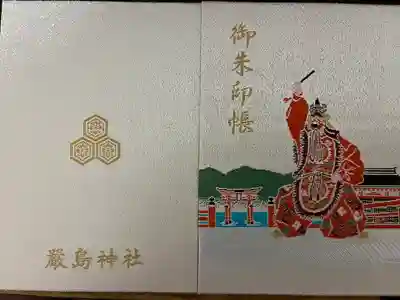 御朱印帳
嚴島神社